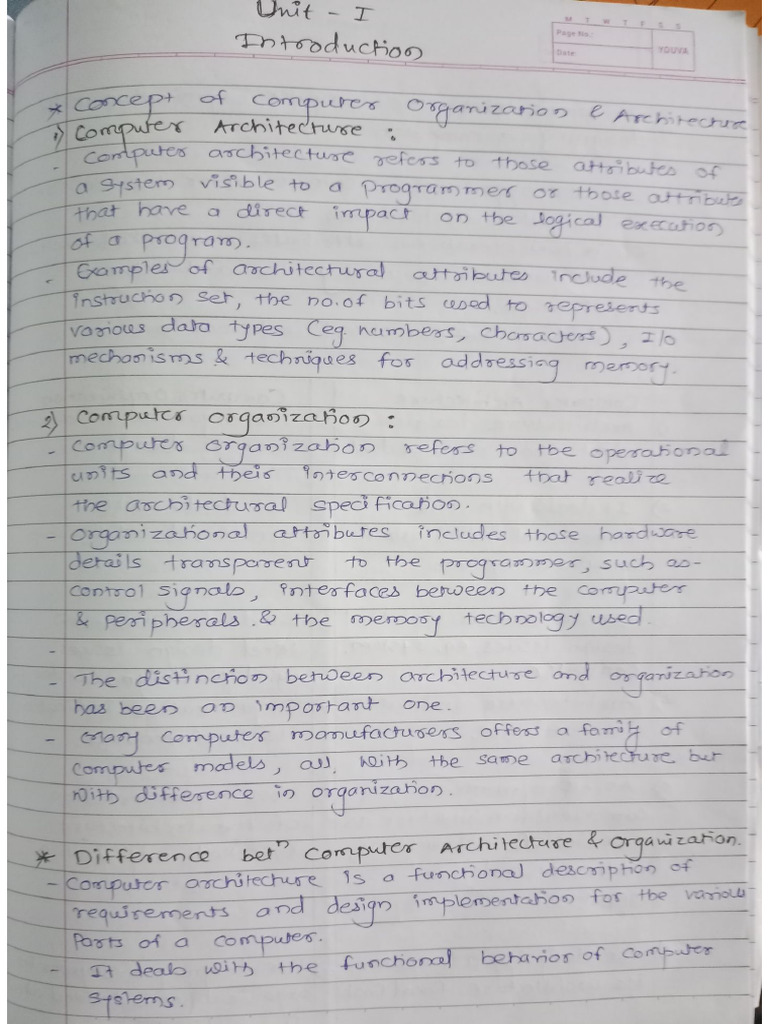 Unit - I
Introduction
M T W T F S S
Page No.:
Date:
YOUVA
* Concept of Computer Organization & Architecture
1) Computer Architecture :
- Computer architecture refers to those attributes of
a system visible to a programmer or those attributes
that have a direct impact on the logical execution
of a program.
- Examples of architectural attributes include the
instruction set, the no. of bits used to represents
various data types (eg. numbers, characters), I/O
mechanisms & techniques for addressing memory.
2) Computer Organization :
- Computer organization refers to the operational
units and their interconnections that realize
the architectural specification.
- Organizational attributes includes those hardware
details transparent to the programmer, such as-
control signals, interfaces between the computer
& peripherals. & the memory technology used.
-
- The distinction between architecture and organization
has been an important one.
- Many computer manufacturers offers a family of
computer models, all with the same architecture but
with difference in organization.
* Difference betn Computer Architecture & Organization.
- Computer architecture is a functional description of
requirements and design implementation for the various
parts of a computer.
- It deals with the functional behavior of computer
systems.